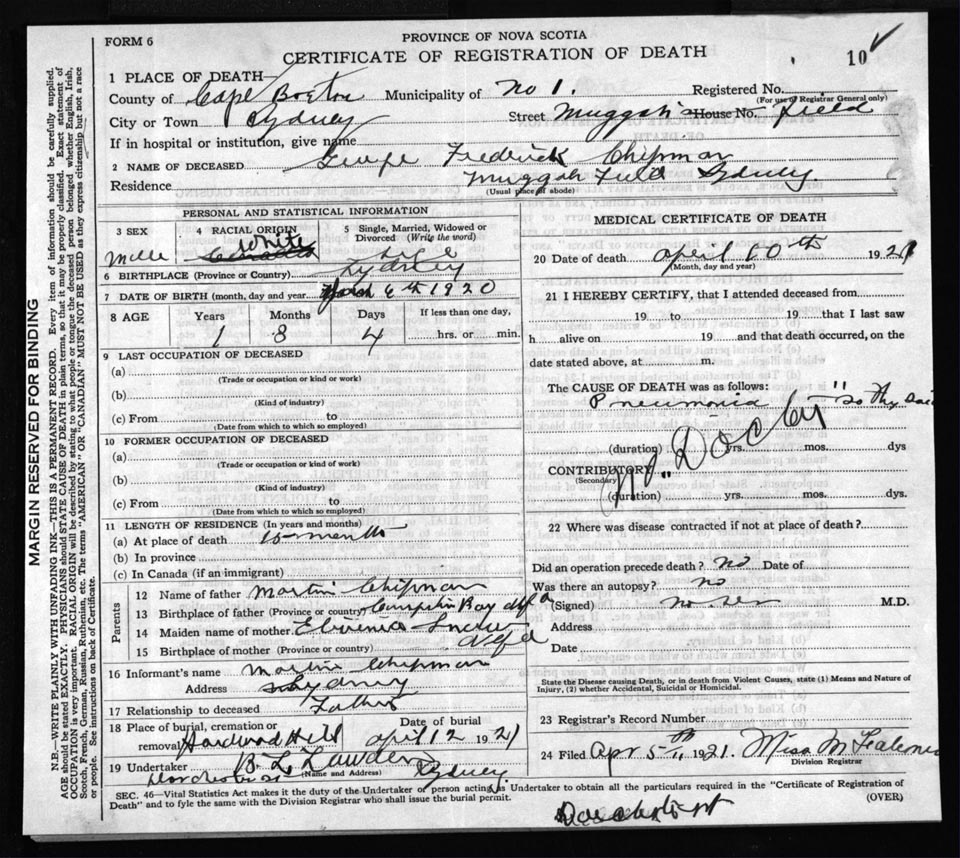 PROVINCE OF NOVA SCOTIA
FORM 6
CERTIFICATE OF REGISTRATION OF DEATH
10 ✓
1 PLACE OF DEATH—
County of Cape Breton Municipality of No 1. Registered No.
(For use of Registrar General only)
City or Town Sydney Street Muggah House No. field
If in hospital or institution, give name
2 NAME OF DECEASED George Frederick Chipman
Residence Muggah Field Sydney.
(Usual place of abode)
PERSONAL AND STATISTICAL INFORMATION
3 SEX
4 RACIAL ORIGIN
5 Single, Married, Widowed or Divorced (Write the word)
Male White
6 BIRTHPLACE (Province or Country) Sydney
7 DATE OF BIRTH (month, day and year 6th 1920
8 AGE Years Months Days If less than one day,
1 8 4 hrs. or min.
9 LAST OCCUPATION OF DECEASED
(a)
(Trade or occupation or kind or work)
(b)
(Kind of industry)
(c) From to
(Date from which to which so employed)
10 FORMER OCCUPATION OF DECEASED
(a)
(Trade or occupation or kind of work)
(b)
(Kind of industry)
(c) From to
(Date from which to which so employed)
11 LENGTH OF RESIDENCE (In years and months)
(a) At place of death months
(b) In province
(c) In Canada (if an immigrant)
Parents
12 Name of father Martin Chipman
13 Birthplace of father (Province or country) Bay Nfld
14 Maiden name of mother
15 Birthplace of mother (Province or country) Nfld
16 Informant's name Martin Chipman
Address Sydney
17 Relationship to deceased Father
18 Place of burial, cremation or removal Hardwood Hill
Date of burial April 12 1921
19 Undertaker Sydney
(Name and Address)
MEDICAL CERTIFICATE OF DEATH
20 Date of death April 10th 1921
(Month, day and year)
21 I HEREBY CERTIFY, that I attended deceased from
19 to 19 that I last saw
h alive on 19 and that death occurred, on the
date stated above, at m.
The CAUSE OF DEATH was as follows:
Pneumonia "So They Said
(duration) yrs. mos. dys
CONTRIBUTORY
(Secondary)
(duration) yrs. mos. dys.
22 Where was disease contracted if not at place of death?
Did an operation precede death? no Date of
Was there an autopsy? no
(Signed) M.D.
Address
Date
State the Disease causing Death, or in death from Violent Causes, state (1) Means and Nature of Injury, (2) whether Accidental, Suicidal or Homicidal.
23 Registrar's Record Number
24 Filed Apr 1921. Miss
Division Registrar
SEC. 46—Vital Statistics Act makes it the duty of the Undertaker or person acting as Undertaker to obtain all the particulars required in the "Certificate of Registration of
Death" and to fyle the same with the Division Registrar who shall issue the burial permit.
(OVER)
MARGIN RESERVED FOR BINDING
N.B.—WRITE PLAINLY WITH UNFADING INK—THIS IS A PERMANENT RECORD. Every item of information should be carefully supplied.
AGE should be stated EXACTLY. PHYSICIANS should STATE CAUSE OF DEATH in plain terms, so that it may be properly classified. Exact statement of
OCCUPATION is very important. RACIAL ORIGIN will be described by stating to what people or tongue the deceased person belonged whether English, Irish,
Scotch, French, German, Russian, Ruthenian, etc. The terms "AMERICAN" OR "CANADIAN" MUST NOT BE USED as they express citizenship but not a race
or people. See instructions on back of Certificate.